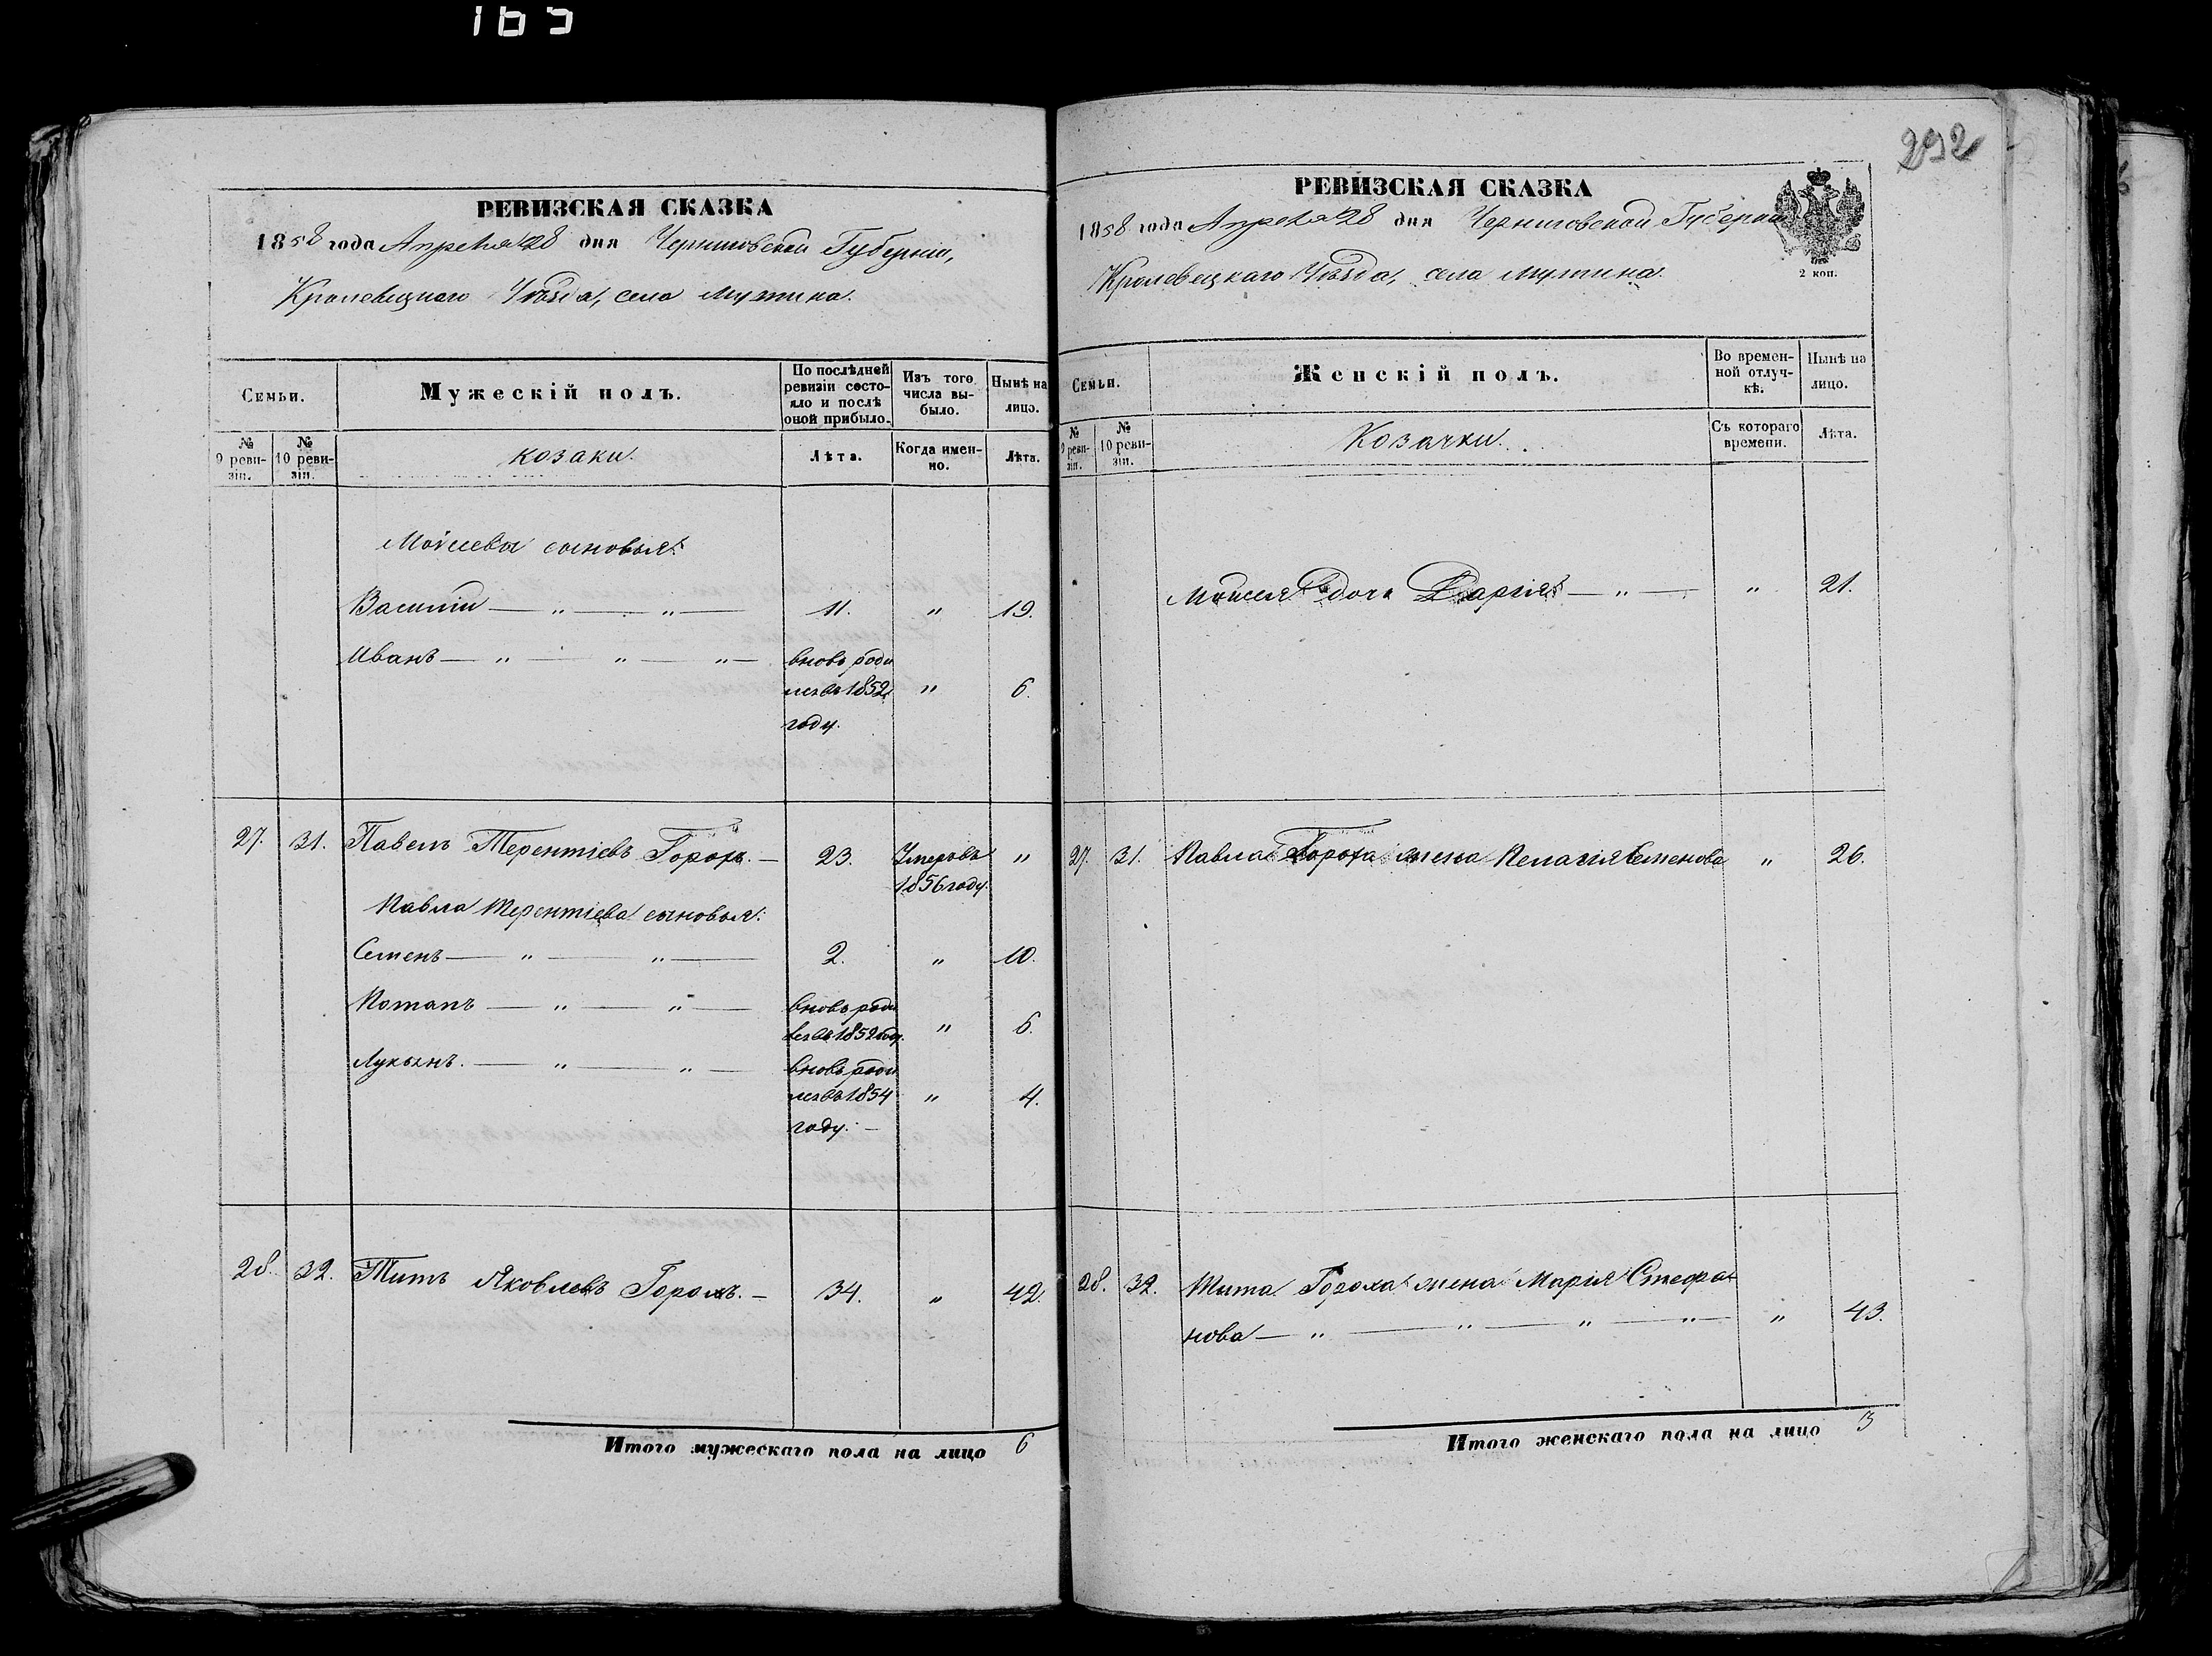 165
РЕВИЗСКАЯ СКАЗКА
1858 года Апреля 28 дня Черниговской Губернии,
Кролевецкаго Уѣзда, села Мутина.
Семьи.
Мужескій полъ.
По послѣдней ревизіи состояло и послѣ оной прибыло.
Изъ того числа выбыло.
Нынѣ на лицо.
№ 9 ревизіи.
№ 10 ревизіи.
Козаки.
Лѣта.
Когда именно.
Лѣта.
Моисеевы сыновья:
Василій — „ — „ — 11. „ 19.
Иванъ — „ — „ — „ — вновь роди
лся въ 1852 „ 6.
году.
27. 31. Павелъ Терентіевъ Горохъ. — 23. Умеръ въ „
1856 году.
Павла Терентіева сыновья:
Семенъ — „ — „ — 2. „ 10.
Потапъ — „ — „ — вновь роди
лся въ 1852 году. „ 6.
Лукьянъ. — „ — „ — вновь роди
лся въ 1854 „ 4.
году. —
28. 32. Титъ Яковлевъ Горохъ. — 34. „ 42.
Итого мужескаго пола на лицо 6
292
РЕВИЗСКАЯ СКАЗКА
1858 года Апреля 28 дня Черниговской Губерніи
2 коп.
Кролевецкаго Уѣзда, села Мутина.
Семьи.
Женскій полъ.
Во временной отлучкѣ.
Нынѣ на лицо.
№ 9 ревизіи.
№ 10 ревизіи.
Козачки.
Съ котораго времени.
Лѣта.
Моисея дочь Дарія — „ — „ 21.
27. 31. Павла Гороха жена Пелагія Семенова „ 26.
28. 32. Тита Гороха жена Марія Стефа
нова — „ — „ — „ — „ — „ 43.
Итого женскаго пола на лицо 3